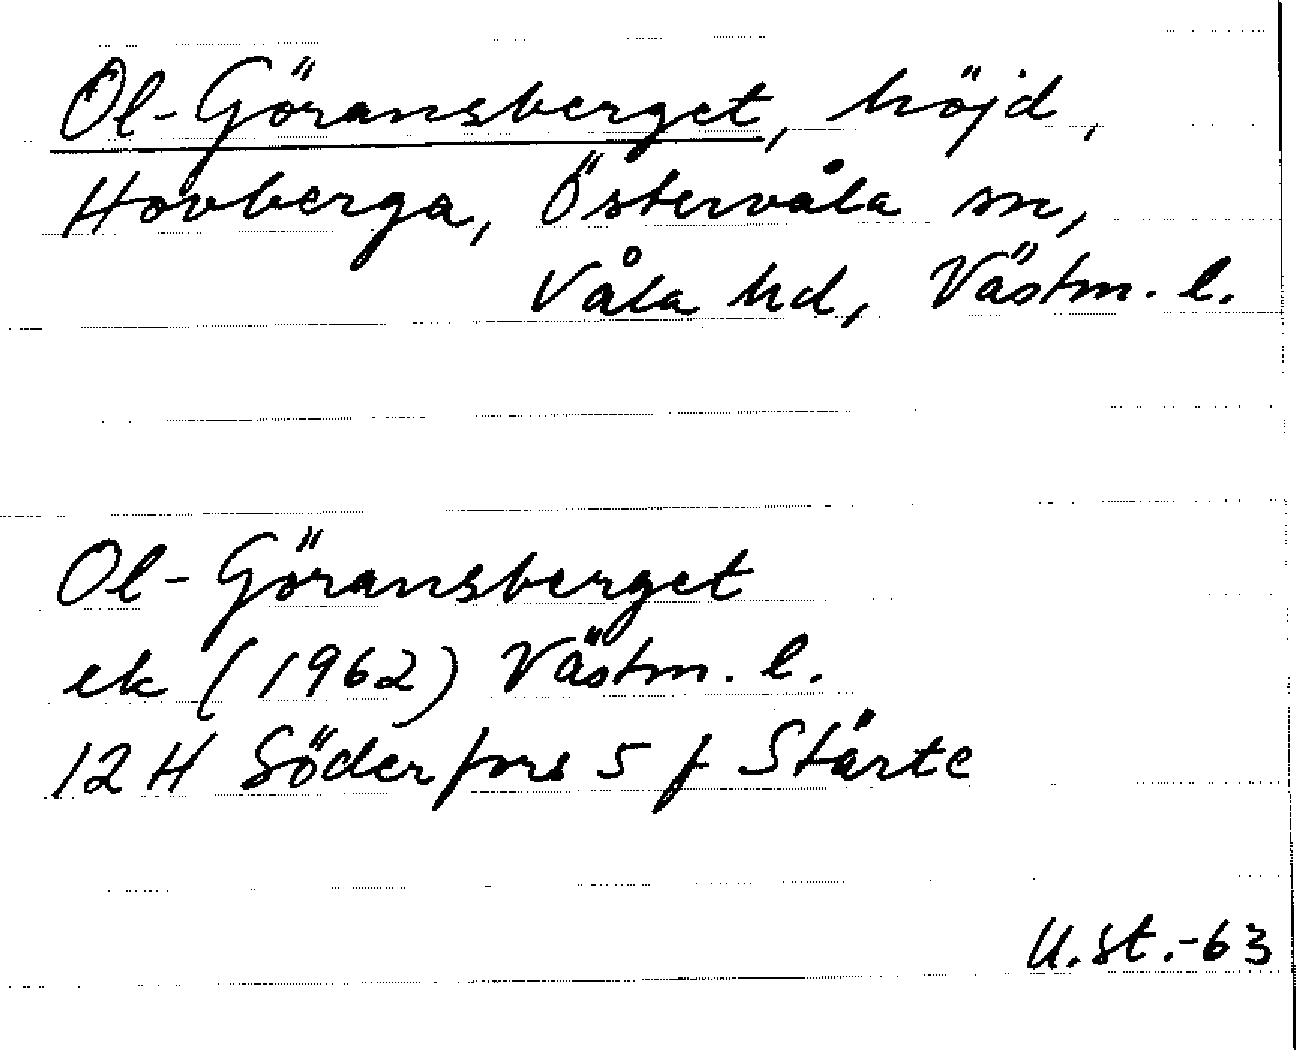 Ol-Göransberget, höjd,
Hovberga, Östervåla sn,
Våla hd, Västm. l.
Ol-Göransberget
ek (1962) Västm. l.
12 H Söderfors 5 f Stärte
U.St.-63